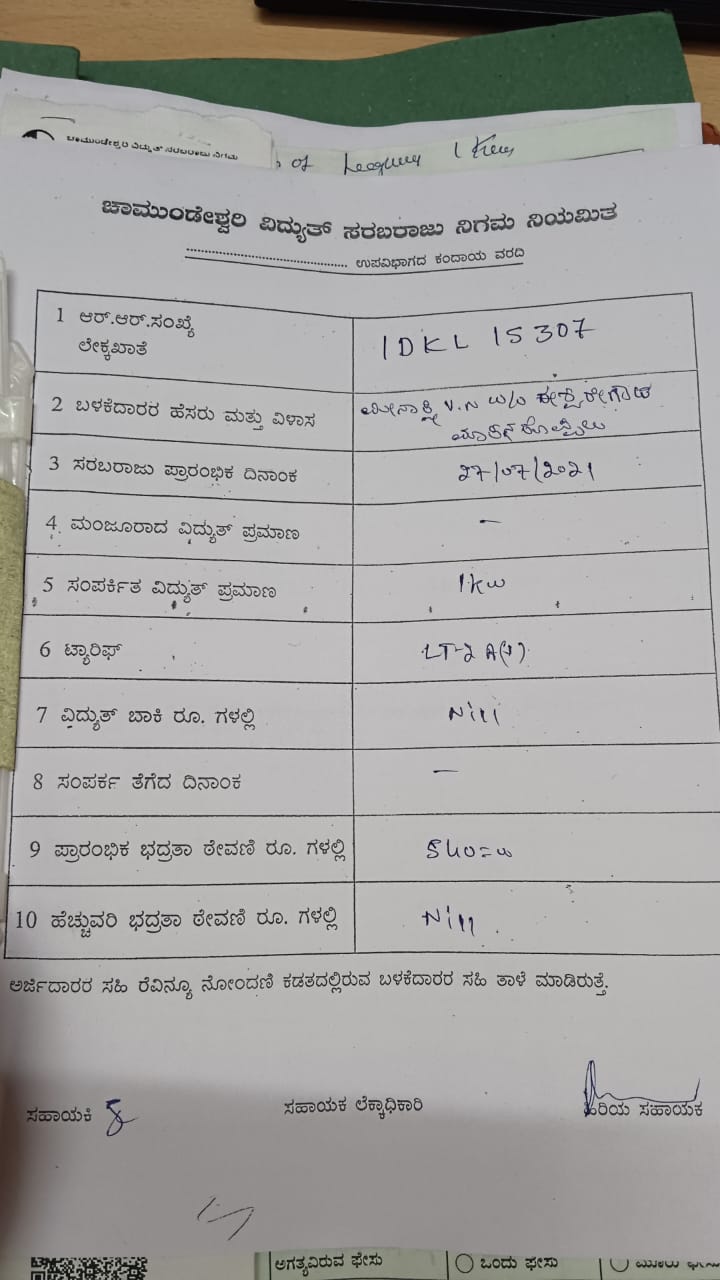 ಚಾಮುಂಡೇಶ್ವರಿ ವಿದ್ಯುತ್ ಸರಬರಾಜು ನಿಗಮ
of 1
ಚಾಮುಂಡೇಶ್ವರಿ ವಿದ್ಯುತ್ ಸರಬರಾಜು ನಿಗಮ ನಿಯಮಿತ
.................................................. ಉಪವಿಭಾಗದ ಕಂದಾಯ ವರದಿ
1 ಆರ್.ಆರ್.ಸಂಖ್ಯೆ
ಲೇಕ್ಕಖಾತೆ
IDKL 15307
2 ಬಳಕೆದಾರರ ಹೆಸರು ಮತ್ತು ವಿಳಾಸ
ಮೀನಾಕ್ಷಿ V.N W/o
3 ಸರಬರಾಜು ಪ್ರಾರಂಭಿಕ ದಿನಾಂಕ
27/07/2021
4 ಮಂಜೂರಾದ ವಿದ್ಯುತ್ ಪ್ರಮಾಣ
–
5 ಸಂಪರ್ಕಿತ ವಿದ್ಯುತ್ ಪ್ರಮಾಣ
1kw
6 ಟ್ಯಾರಿಫ್
LT-2 A(1)
7 ವಿದ್ಯುತ್ ಬಾಕಿ ರೂ. ಗಳಲ್ಲಿ
Nill
8 ಸಂಪರ್ಕ ತೆಗೆದ ದಿನಾಂಕ
–
9 ಪ್ರಾರಂಭಿಕ ಭದ್ರತಾ ಠೇವಣಿ ರೂ. ಗಳಲ್ಲಿ
540=00
10 ಹೆಚ್ಚುವರಿ ಭದ್ರತಾ ಠೇವಣಿ ರೂ. ಗಳಲ್ಲಿ
Nill
ಅರ್ಜಿದಾರರ ಸಹಿ ರೆವಿನ್ಯೂ ನೋಂದಣಿ ಕಡತದಲ್ಲಿರುವ ಬಳಕೆದಾರರ ಸಹಿ ತಾಳೆ ಮಾಡಿರುತ್ತೆ.
ಸಹಾಯಕಿ ಸಹಾಯಕ ಲೆಕ್ಕಾಧಿಕಾರಿ ಹಿರಿಯ ಸಹಾಯಕ
ಅಗತ್ಯವಿರುವ ಫೇಸು ಒಂದು ಫೇಸು ಮೂರು ಫೇಸು